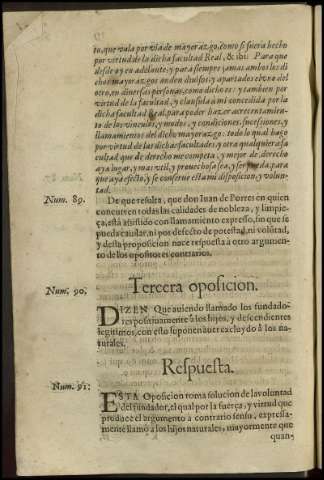 to, que vala por via de mayorazgo, como si fuera hecho
por virtud de la dicha facultad Real, & ibi: Para que
desde oy en adelante, y para siempre jamas ambos los di
chos mayorazgos anden diuisos, y apartados el vno del
otro, en diuersas personas, como dicho es: y tambien por
virtud de la facultad, y clausula a mi concedida por la
dicha facultad Real, para poder hazer acrecentamien-
to de los vinculos, y modos, y condiciones, sucessiones, y
llamamientos del dicho mayorazgo: todo lo qual hago
por virtud de las dichas facultades, y otra qualquiera fa
cultad, que de derecho me competa, y mejor de derecho
aya lugar, y mas vtil, y prouechosa sea, y se pueda, para
que aya efecto, y se conserue esta mi disposicion, y volun-
tad.
Num. 89. De que resulta, que don Iuan de Porres en quien
concurren todas las calidades de nobleza, y limpie-
ça, està assistido con llamamiento expresso, sin que se
pueda cauilar, ni por defecto de potestad, ni volutad,
y desta proposicion nace respuesta à otro argumen-
to de los opositores contrarios.
Num. 90. Tercera oposicion.
DIZEN Que auiendo llamado los fundado-
res positiuamente à los hijos, y descendientes
legitimos, con esto suponen auer excluydo à los na-
turales.
Respuesta.
Num. 91. ESTA Oposicion toma solucion de la voluntad
del fundador, al qual por la fuerça, y virtud que
produce el argumento à contrario sensu, expressa-
mente llamò a los hijos naturales, mayormente que
quan-